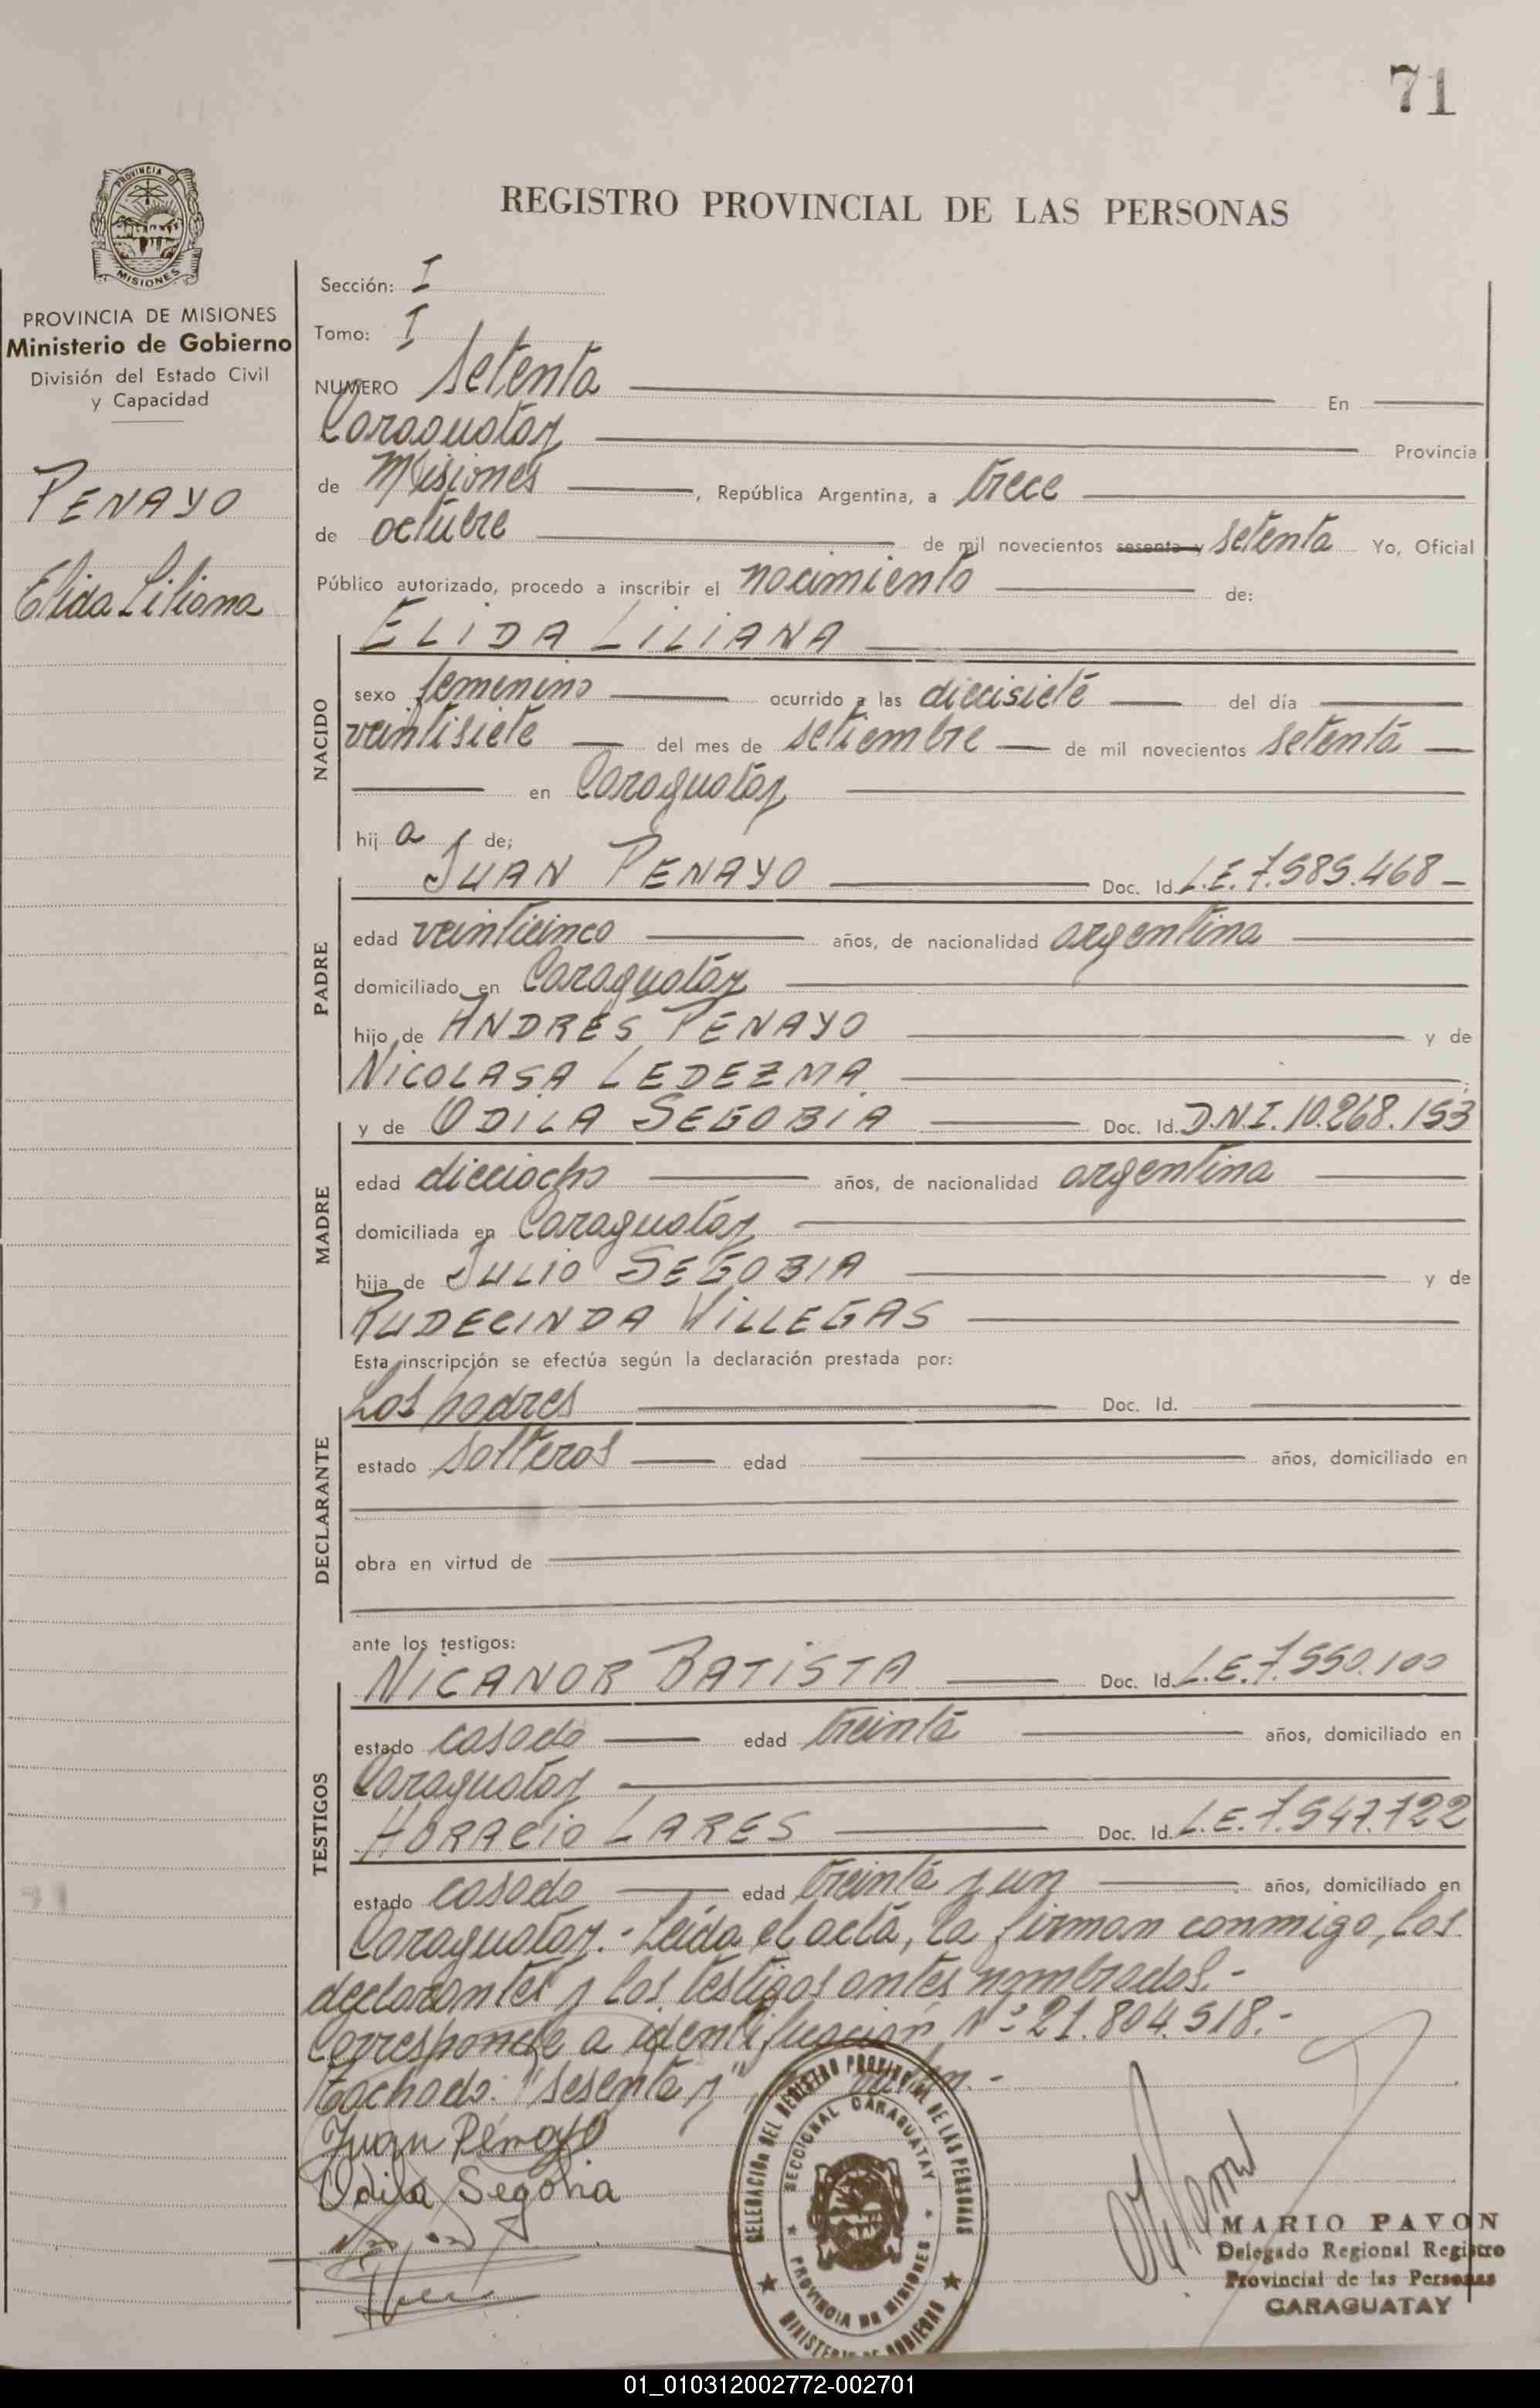 71
PROVINCIA DE
MISIONES
PROVINCIA DE MISIONES
Ministerio de Gobierno
División del Estado Civil
y Capacidad
PENAYO
Elida Liliana
REGISTRO PROVINCIAL DE LAS PERSONAS
Sección: I
Tomo: I
NUMERO setenta En
Caraguatay Provincia
de Misiones, República Argentina, a trece
de octubre de mil novecientos sesenta y setenta Yo, Oficial
Público autorizado, procedo a inscribir el nacimiento de:
NACIDO
ELIDA LILIANA
sexo femenino ocurrido a las diecisiete del día
veintisiete del mes de setiembre de mil novecientos setenta
en Caraguatay
hij a de;
PADRE
JUAN PENAYO Doc. Id. L.E.7.585.468
edad veinticinco años, de nacionalidad argentina
domiciliado en Caraguatay
hijo de ANDRES PENAYO y de
NICOLASA LEDEZMA
MADRE
y de ODILA SEGOBIA Doc. Id. D.N.I.10.268.153
edad dieciocho años, de nacionalidad argentina
domiciliada en Caraguatay
hija de JULIO SEGOBIA y de
RUDECINDA VILLEGAS
Esta inscripción se efectúa según la declaración prestada por:
DECLARANTE
Los padres Doc. Id.
estado solteros edad años, domiciliado en
obra en virtud de
ante los testigos:
TESTIGOS
NICANOR BATISTA Doc. Id. L.E.7.550.100
estado casado edad treinta años, domiciliado en
Caraguatay
HORACIO LARES Doc. Id. L.E.7.547.722
estado casado edad treinta y un años, domiciliado en
Caraguatay.- Leída el acta, la firman conmigo, los
declarantes y los testigos antes nombrados.-
Corresponde a identificación Nº 21.804.518.-
Tachado: "sesenta y",
Juan Penayo
Odila Segovia
DELEGACION DEL REGISTRO PROVINCIAL DE LAS PERSONAS
SECCIONAL CARAGUATAY
PROVINCIA DE MISIONES
MINISTERIO DE GOBIERNO
MARIO PAVON
Delegado Regional Registro
Provincial de las Personas
CARAGUATAY
01_010312002772-002701